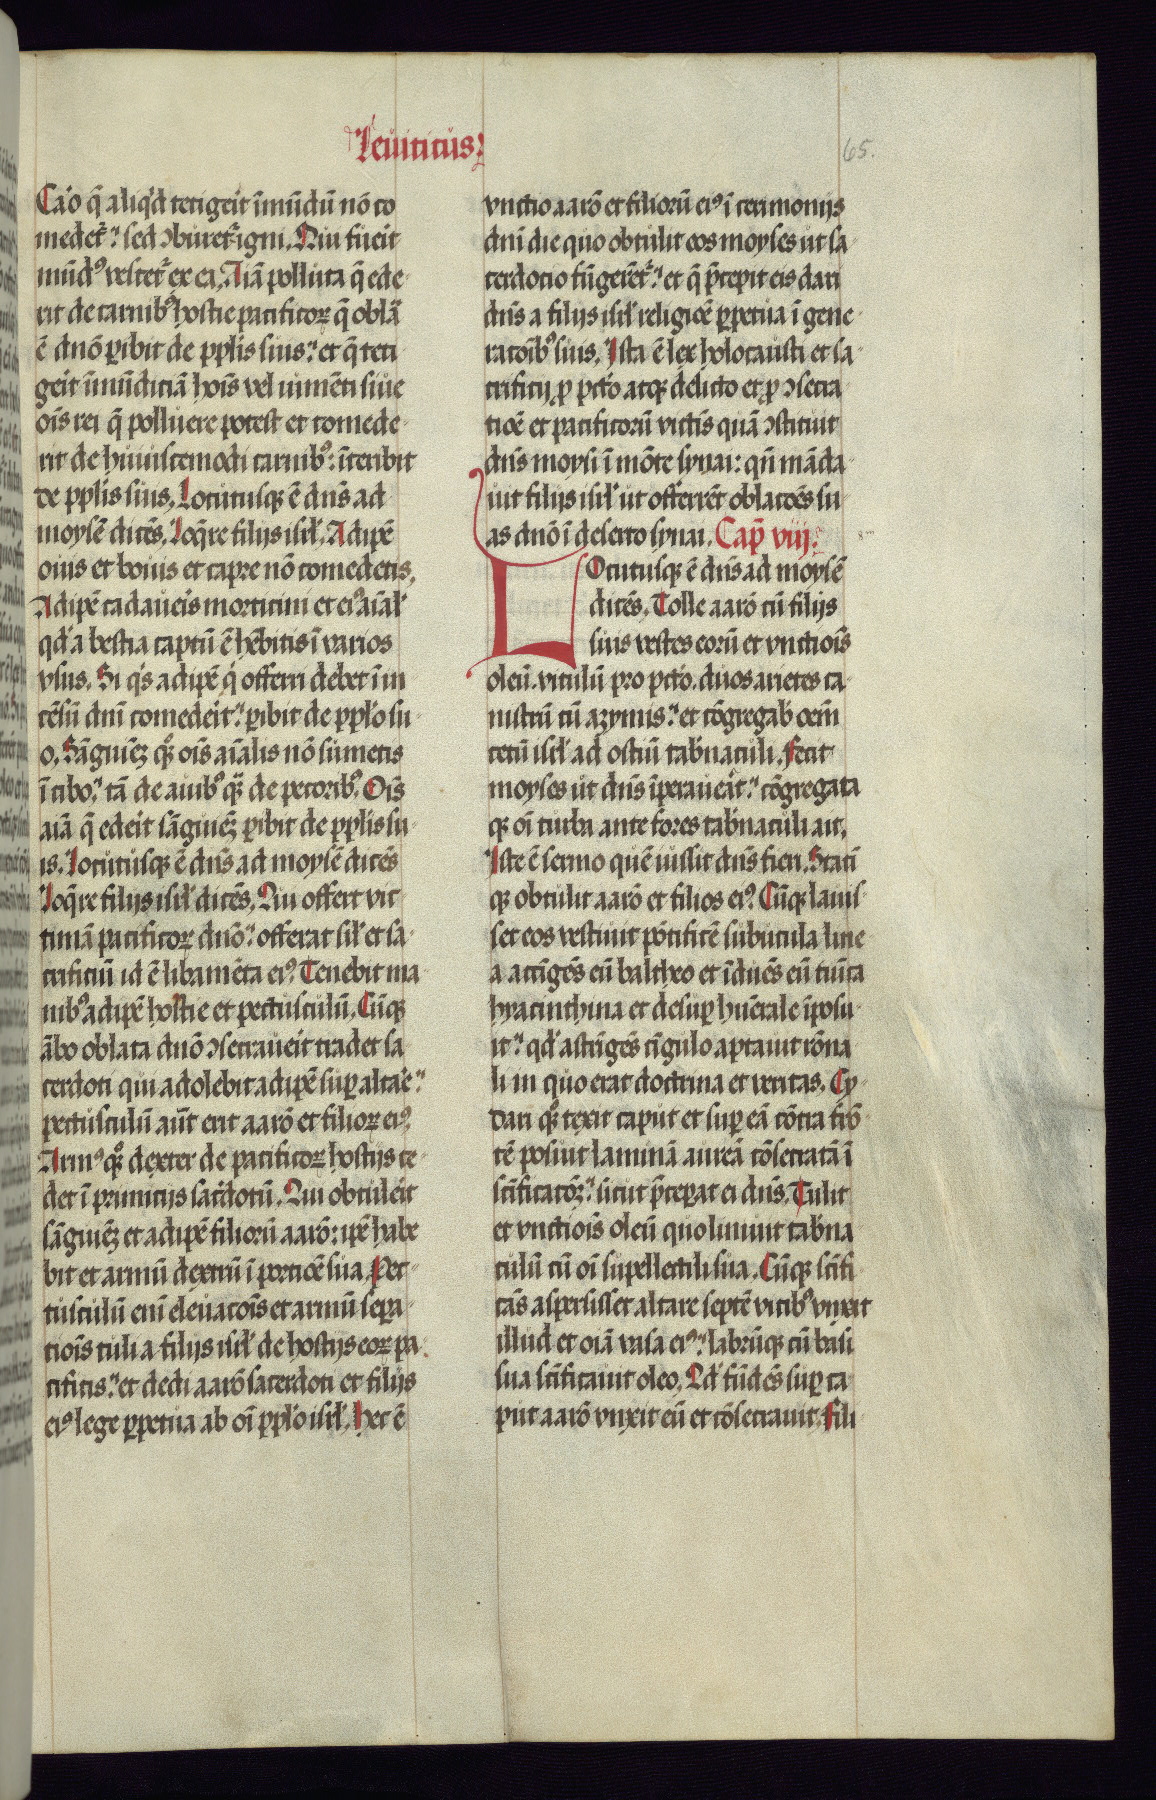 Leuiticus
65.
Caro q̄ aliq'd tetigerit īmūdū nō co
medet᷑: sed ɔburet᷑ igni. Qui fuerit
mūdꝰ vescet᷑ ex ea. Aīa polluta q̄ ede
rit de carnibꝰ hostie pacificoꝝ q̄ oblā
ē dnō ꝑibit de ppl̄is suis: et q̄ teti
gerit īmūdiciā hoīs vel iumēti siue
oīs rei q̄ polluere potest et comede
rit de huiuscemodi carnibꝰ: īteribit
de ppl̄is suis. Locutusqꝫ ē dn̄s ad
moysē dicēs. Loq̄re filijs isrl̄. Adipē
ouis et bouis et capre nō comedetis.
Adipē cadaueris morticini et eiꝰ aīal'
qd' a bestia captū ē hēbitis ī varios
vsus. Si q's adipē q' offerri debet ī in
cēsū dnī comederit: ꝑibit de ppl̄o su
o. Sāguinē qꝫ oīs aīalis nō sumetis
ī cibo: tā de auibꝰ qꝫ de pecoribꝰ. Oīs
aīa q̄ ederit sāguinē ꝑibit de ppl̄is su
is. Locutusqꝫ ē dn̄s ad moysē dicēs
Loq̄re filijs isrl̄ dicēs. Qui offert vic
timā pacificoꝝ dnō: offerat sil' et sa
crificiū id ē libamēta eiꝰ. Tenebit ma
nibꝰ adipē hostie et pectusculū. Cūqꝫ
ābo oblata dnō ɔsecrauerit tradet sa
cerdoti qui adolebit adipē suꝑ altare:
pectusculū aūt erit aarō et filioꝝ eiꝰ.
Armꝰ qꝫ dexter de pacificoꝝ hostijs ce
det ī primicijs sac̄dotū. Qui obtulerit
sāguinē et adipē filiorū aarō: ip̄e habe
bit et armū dextrū ī porcōe sua. Pec
tusculū enī eleuacōis et armū sepa
ciois tuli a filijs isrl̄ de hostijs eoꝝ pa
cificis: et dedi aarō sacerdoti et filijs
eiꝰ lege ꝑpetua ab oī ppl̄o isrl̄. Hec ē
vnctio aarō et filiorū eiꝰ ī cerimonijs
dnī die quo obtulit eos moyses ut sa
cerdocio fūgerēt᷑: et q̄ p̄cepit eis dari
dn̄s a filijs isrl̄ religiōe ꝑpetua ī gene
racōibꝰ suis. Ista ē lex holocausti et sa
crificij ꝓ pctō atqꝫ delicto et ꝓ ɔsecra
ciōe et pacificorū victīs quā ɔstituit
dn̄s moysi ī mōte synai: qn̄ māda
uit filijs isrl̄ ut offerrēt oblacōes su
as dnō ī deserto synai. Cap̄ viij.
LOcutusqꝫ ē dn̄s ad moysē
dicēs. Tolle aarō cū filijs
suis vestes eorū et vnctiois
oleū. vitulū pro pctō. duos arietes ca
nistrū cū azymis: et cōgregab' oēm
cetū isrl̄ ad ostiū tab̄naculi. Fecit
moyses ut dn̄s īperauerat: cōgregata
qꝫ oī turba ante fores tab̄naculi ait.
Iste ē sermo quē iussit dn̄s fieri. Statī
qꝫ obtulit aarō et filios eiꝰ. Cūqꝫ lauis
set eos vestiuit pōtificē subucula line
a accīgēs eū baltheo et īduēs eū tunica
hyacinthina et desuꝑ huērale īposu
it: qd' astrīgēs cīgulo aptauit rōna
li in quo erat doctrina et veritas. Cy
dari qꝫ texit caput et suꝑ eā cōtra frō
tē posuit laminā aureā cōsecratā ī
scīficacōꝫ: sicut p̄ceꝑat ei dn̄s. Tulit
et vnctiois oleū quo liniuit tab̄na
culū cū oī supellectili sua. Cūqꝫ scīfi
cās aspersisset altare septē vicibꝰ vnxit
illud et oīa vasa eiꝰ: labrūqꝫ cū basi
sua scīficauit oleo. Qd' fūdēs suꝑ ca
put aarō vnxit eū et cōsecrauit. Fili